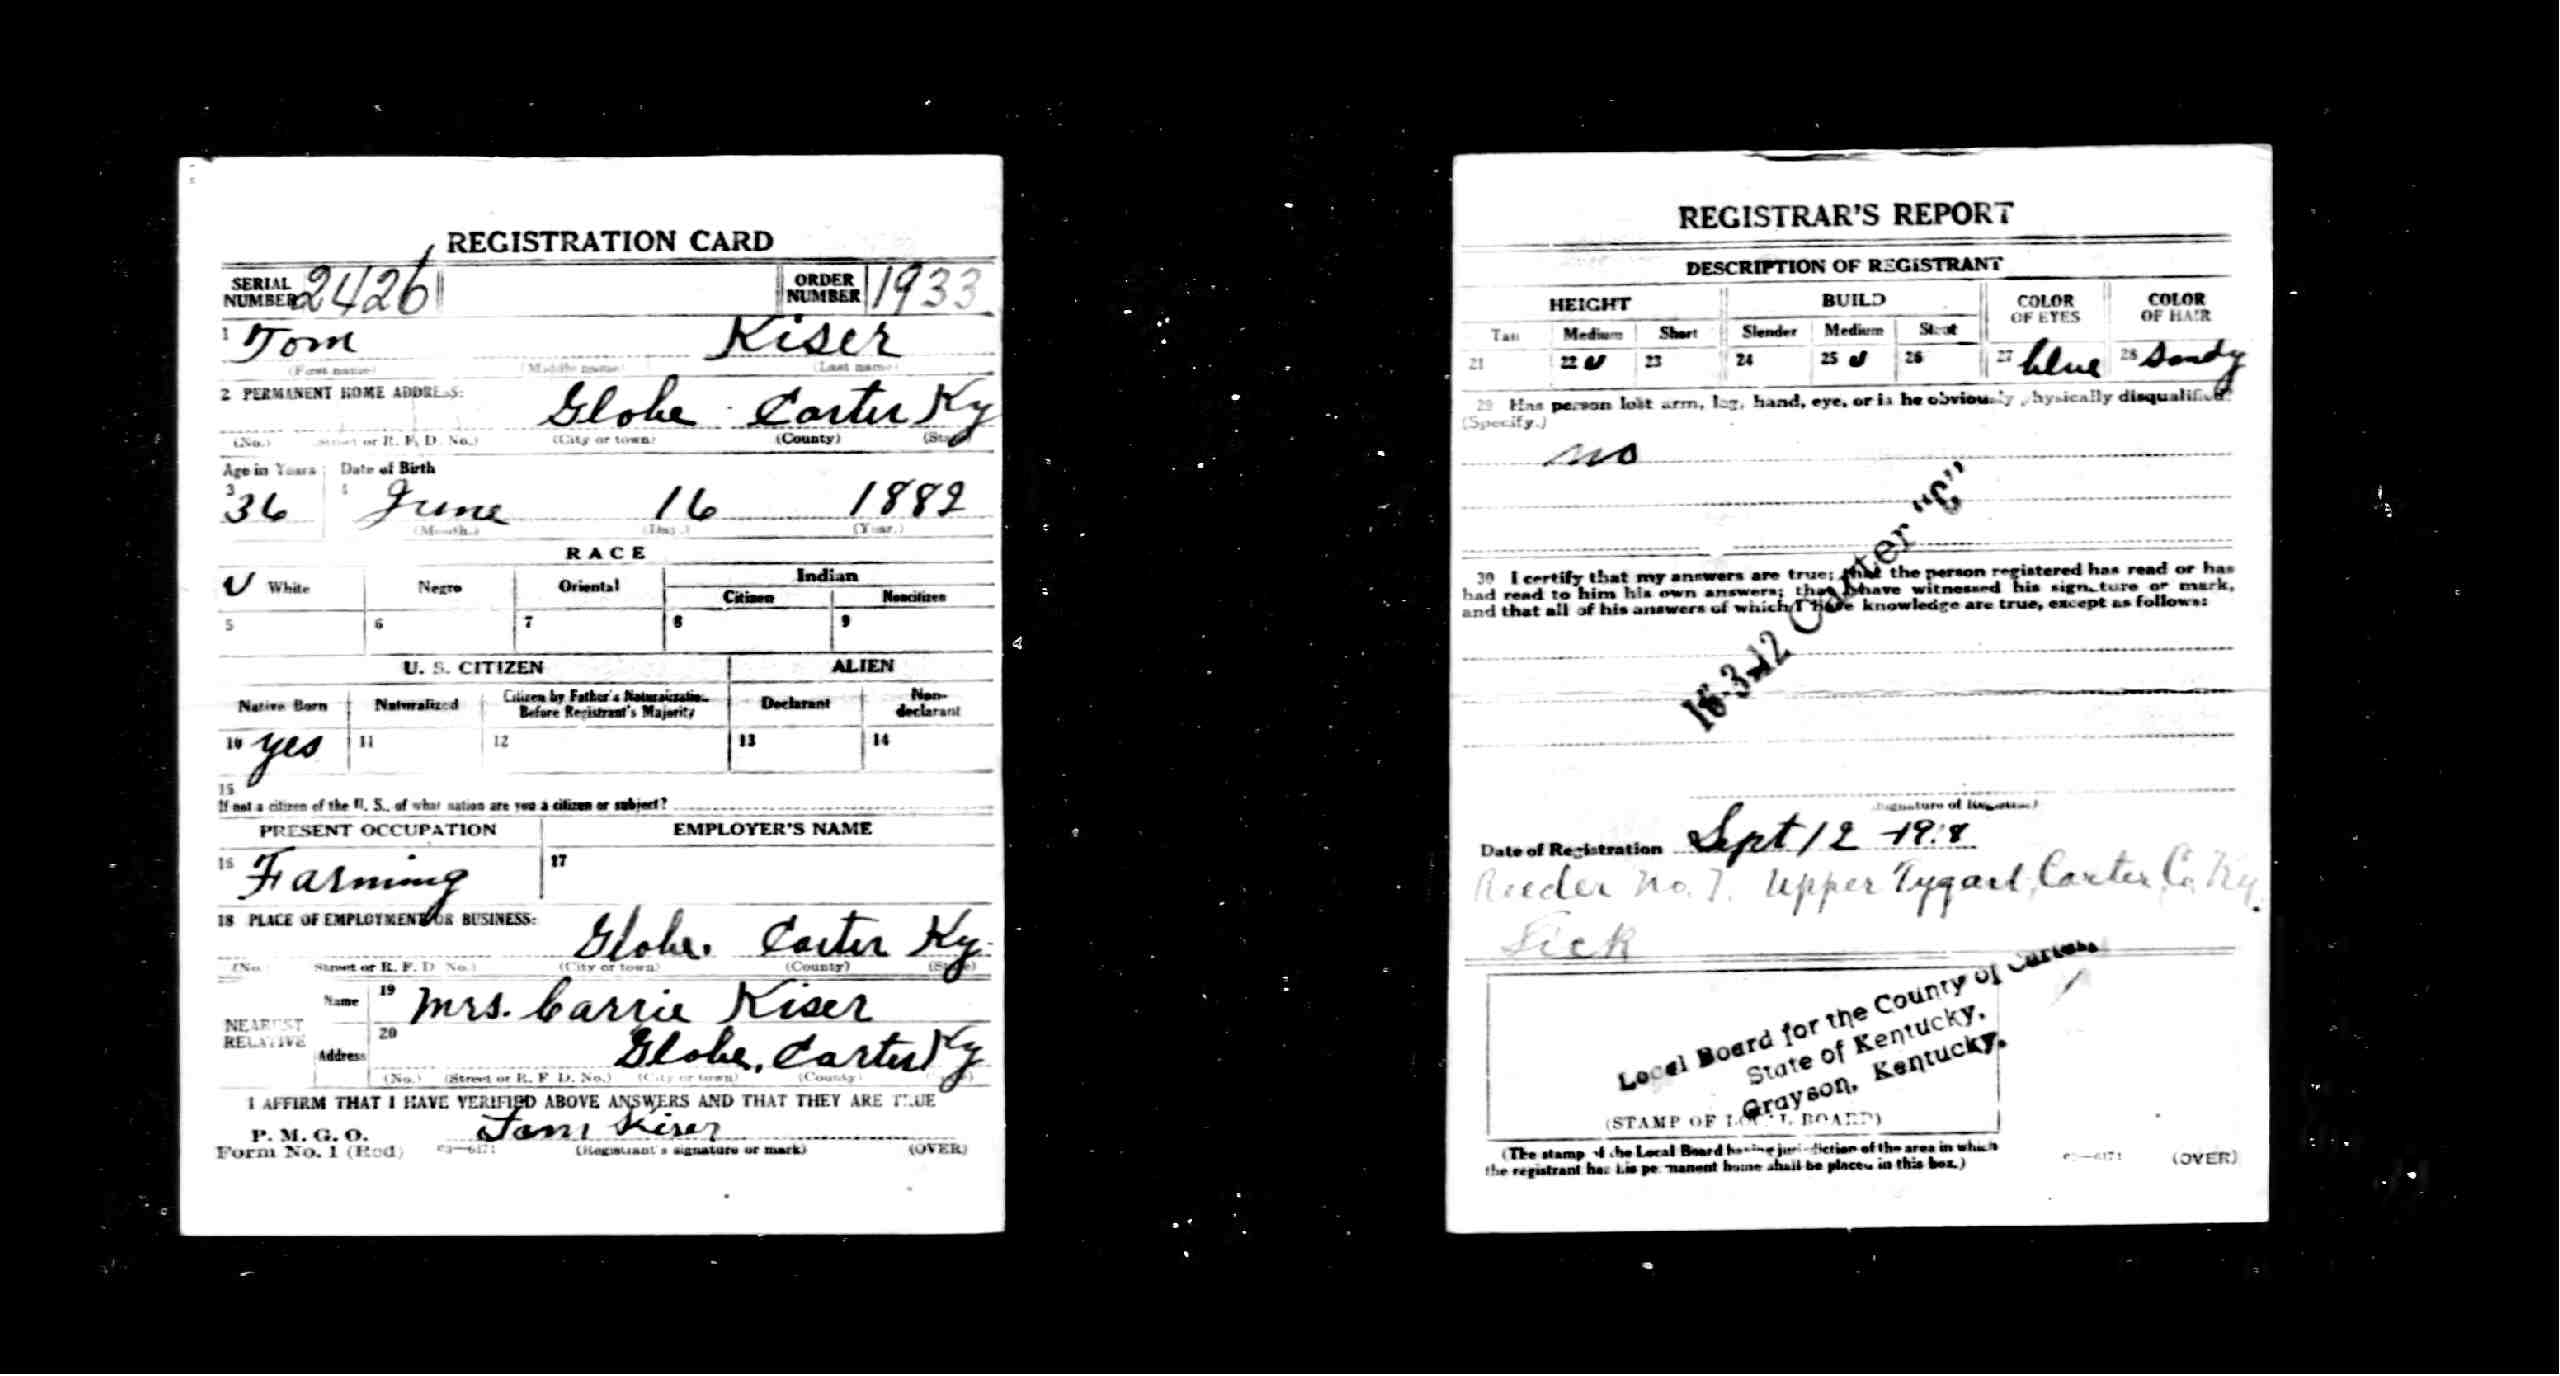 REGISTRATION CARD
SERIAL NUMBER 2426 ORDER NUMBER 1933
1 Tom Kiser
(First name) (Middle name) (Last name)
2 PERMANENT HOME ADDRESS: Globe Carter Ky
(No.) (Street or R. F. D. No.) (City or town) (County) (State)
Age in Years Date of Birth
3 36 4 June 16 1882
(Month.) (Day.) (Year.)
RACE
White Negro Oriental Indian
Citizen Noncitizen
5 6 7 8 9
U. S. CITIZEN ALIEN
Native Born Naturalized Citizen by Father's Naturalization Before Registrant's Majority Declarant Non-declarant
10 yes 11 12 13 14
15
If not a citizen of the U. S., of what nation are you a citizen or subject?
PRESENT OCCUPATION EMPLOYER'S NAME
16 Farming 17
18 PLACE OF EMPLOYMENT OR BUSINESS: Globe. Carter Ky.
(No.) Street or R. F. D. No.) (City or town) (County) (State)
NEAREST RELATIVE
Name 19 Mrs. Carrie Kiser
Address 20 Globe, Carter Ky
(No.) (Street or R. F. D. No.) (City or town) (County)
I AFFIRM THAT I HAVE VERIFIED ABOVE ANSWERS AND THAT THEY ARE TRUE
P. M. G. O.
Form No. 1 (Red) 03—6171 Tom Kiser
(Registrant's signature or mark) (OVER)
REGISTRAR'S REPORT
DESCRIPTION OF REGISTRANT
HEIGHT BUILD COLOR OF EYES COLOR OF HAIR
Tall Medium Short Slender Medium Stout
21 22 23 24 25 26 27 blue 28 sandy
29 Has person lost arm, leg, hand, eye, or is he obviously physically disqualified?
(Specify.)
no
16-3-12 Carter "C"
30 I certify that my answers are true; that the person registered has read or has
had read to him his own answers; that I have witnessed his signature or mark,
and that all of his answers of which I have knowledge are true, except as follows:
(Signature of Registrar)
Date of Registration Sept 12 1918
No. 7. Upper Tygart, Carter Co. Ky.
Sick
Local Board for the County of Carter,
State of Kentucky,
Grayson, Kentucky.
(STAMP OF LOCAL BOARD)
(The stamp of the Local Board having jurisdiction of the area in which
the registrant has his permanent home shall be placed in this box.)
03—6171 (OVER)